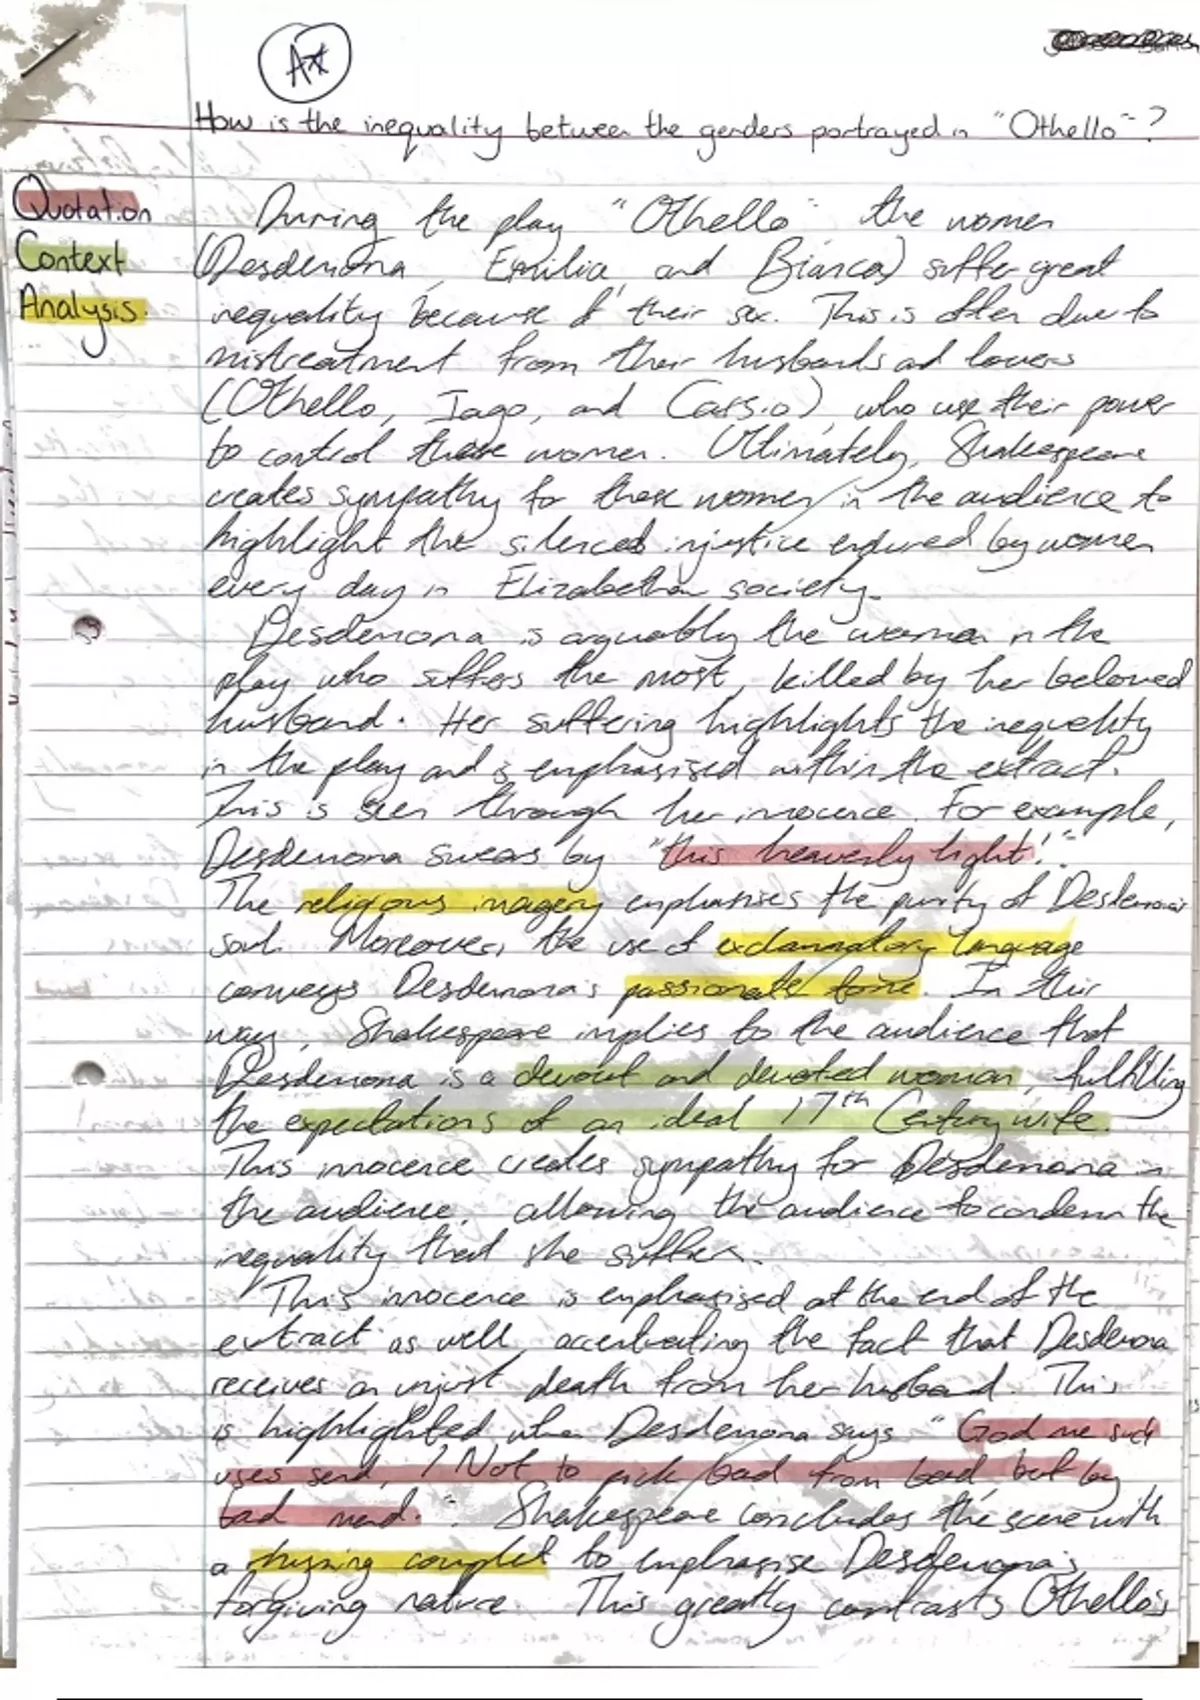 A*
How is the inequality between the genders portrayed in "Othello"?
Quotation
Context
Analysis.
During the play "Othello" the women
(Desdemona, Emilia, and Bianca) suffer great
inequality because of their sex. This is often due to
mistreatment from their husbands and lovers
(Othello, Iago, and Cassio) who use their power
to control these women. Ultimately, Shakespeare
creates sympathy for these women in the audience to
highlight the silenced injustice endured by women
every day in Elizabethan society.
Desdemona is arguably the woman in the
play who suffers the most, killed by her beloved
husband. Her suffering highlights the inequality
in the play and is emphasised within the extract.
This is seen through her innocence. For example,
Desdemona swears by "this heavenly light!"
The religious imagery emphasises the purity of Desdemona's
soul. Moreover, the use of exclamatory language
conveys Desdemona's passionate tone. In this
way, Shakespeare implies to the audience that
Desdemona is a devout and devoted woman, fulfilling
the expectations of an ideal 17th Century wife.
This innocence creates sympathy for Desdemona in
the audience, allowing the audience to condemn the
inequality that she suffers.
This innocence is emphasised at the end of the
extract as well, accentuating the fact that Desdemona
receives an unjust death from her husband. This
is highlighted when Desdemona says "God me such
uses send, / Not to pick bad from bad, but by
bad mend." Shakespeare concludes the scene with
a rhyming couplet to emphasise Desdemona's
forgiving nature. This greatly contrasts Othello's